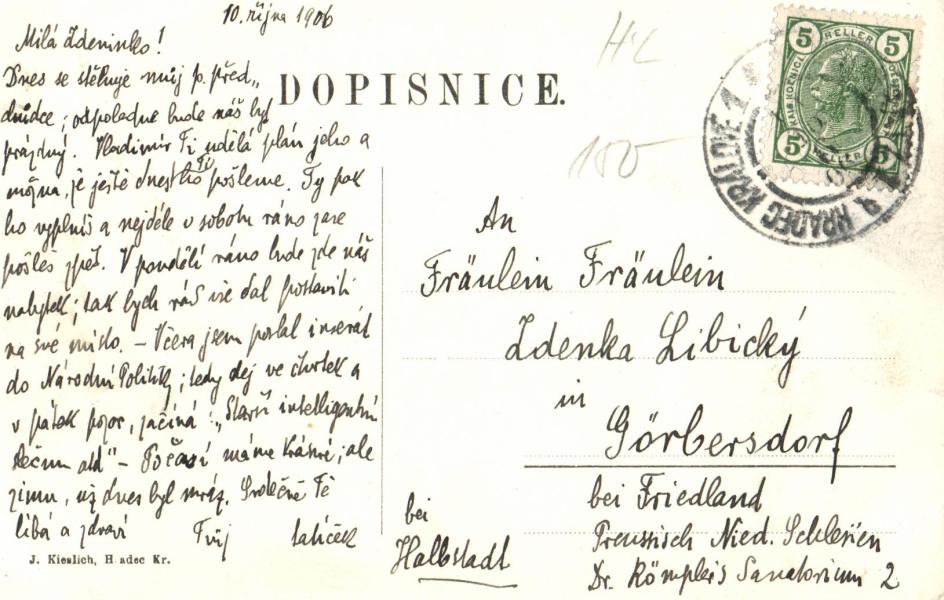 10. října 1906
Milá Zdeninko!
Dnes se stěhuje můj p. před„
chůdce; odpoledne bude náš byt
prázdný. Vladimír Ti udělá plán jeho a
možna, že ještě dnes ho Ti pošleme. Ty pak
ho vyplníš a nejdéle v sobotu ráno zase
pošleš zpět. V pondělí ráno bude zde náš
nabytek; tak bych rád vše dal postaviti
na své místo. – Včera jsem poslal inserát
do Národní Politiky; tedy dej ve čtvrtek a
v pátek pozor, začíná: „Starší intelligentní
slečnu atd“ – Počasí máme krásné; ale
zimu, už dnes byl mráz. Srdečně Tě
líbá a zdraví
Tvůj tatíček
J. Kieslich, H adec Kr.
DOPISNICE.
HK
150
5 HELLER 5
5 HELLER 5
HRADEC KRÁLOVÉ 1
An
Fräulein Fräulein
Zdenka Libický
in
Görbersdorf
bei Friedland
bei
Halbstadt
Preussisch Nied. Schlesien
Dr. Römpler's Sanatorium 2